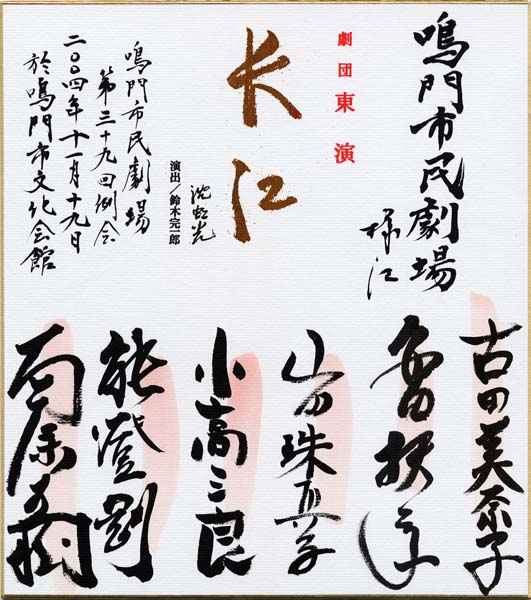 鳴門市民劇場
様江
劇団東演
长江
沈虹光
演出／鈴木完一郎
鳴門市民劇場
第三十九回例会
二〇〇四年十一月十九日
於鳴門市文化会館
古田美奈子
山田珠真子
小高三良
能登剛